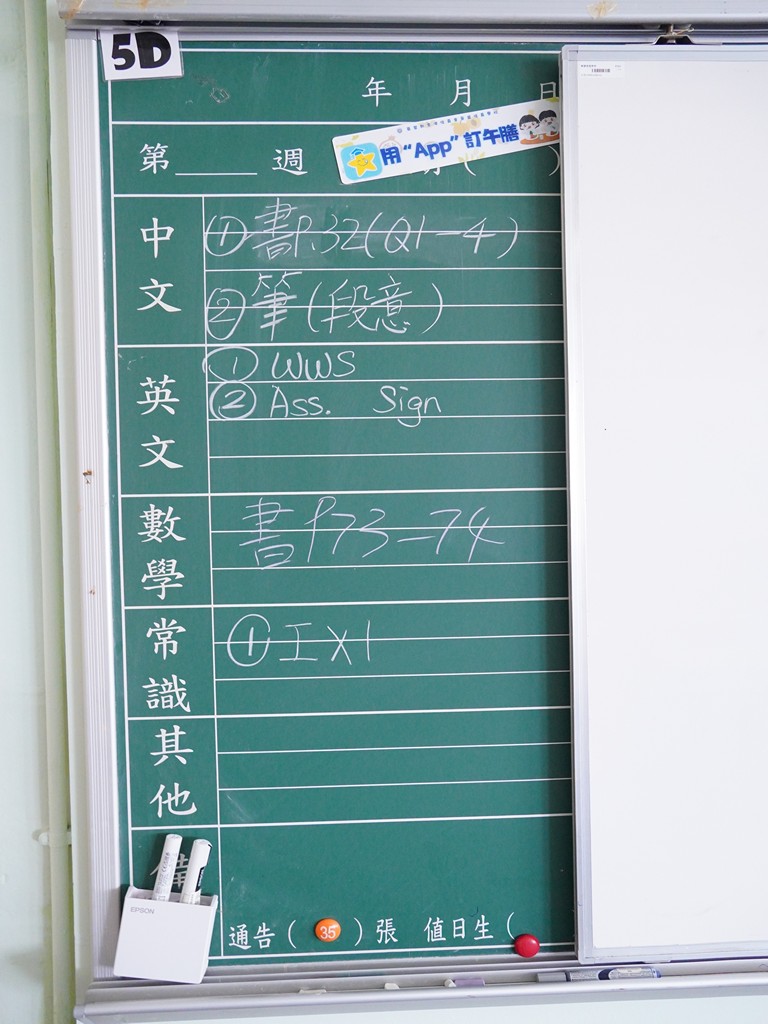 5D
年 月 日
用“App”訂午膳
第____週 (
中文
①書P.32(Q1-4)
②筆(段意)
英文
① WWS
② Ass. Sign
數學
書P73-74
常識
① 工 X 1
其他
備
EPSON
通告( 35 )張 值日生(